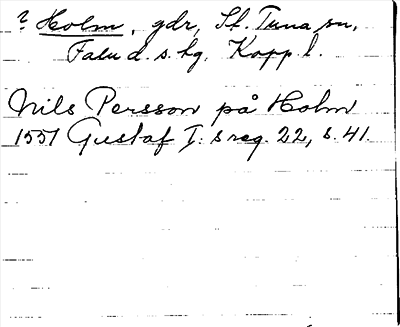 ? Holm, gdr, St. Tuna sn,
Falu d. s. hg. Kopp. l.
Nils Persson på Holm
1551 Gustaf I: s reg. 22, s. 41.